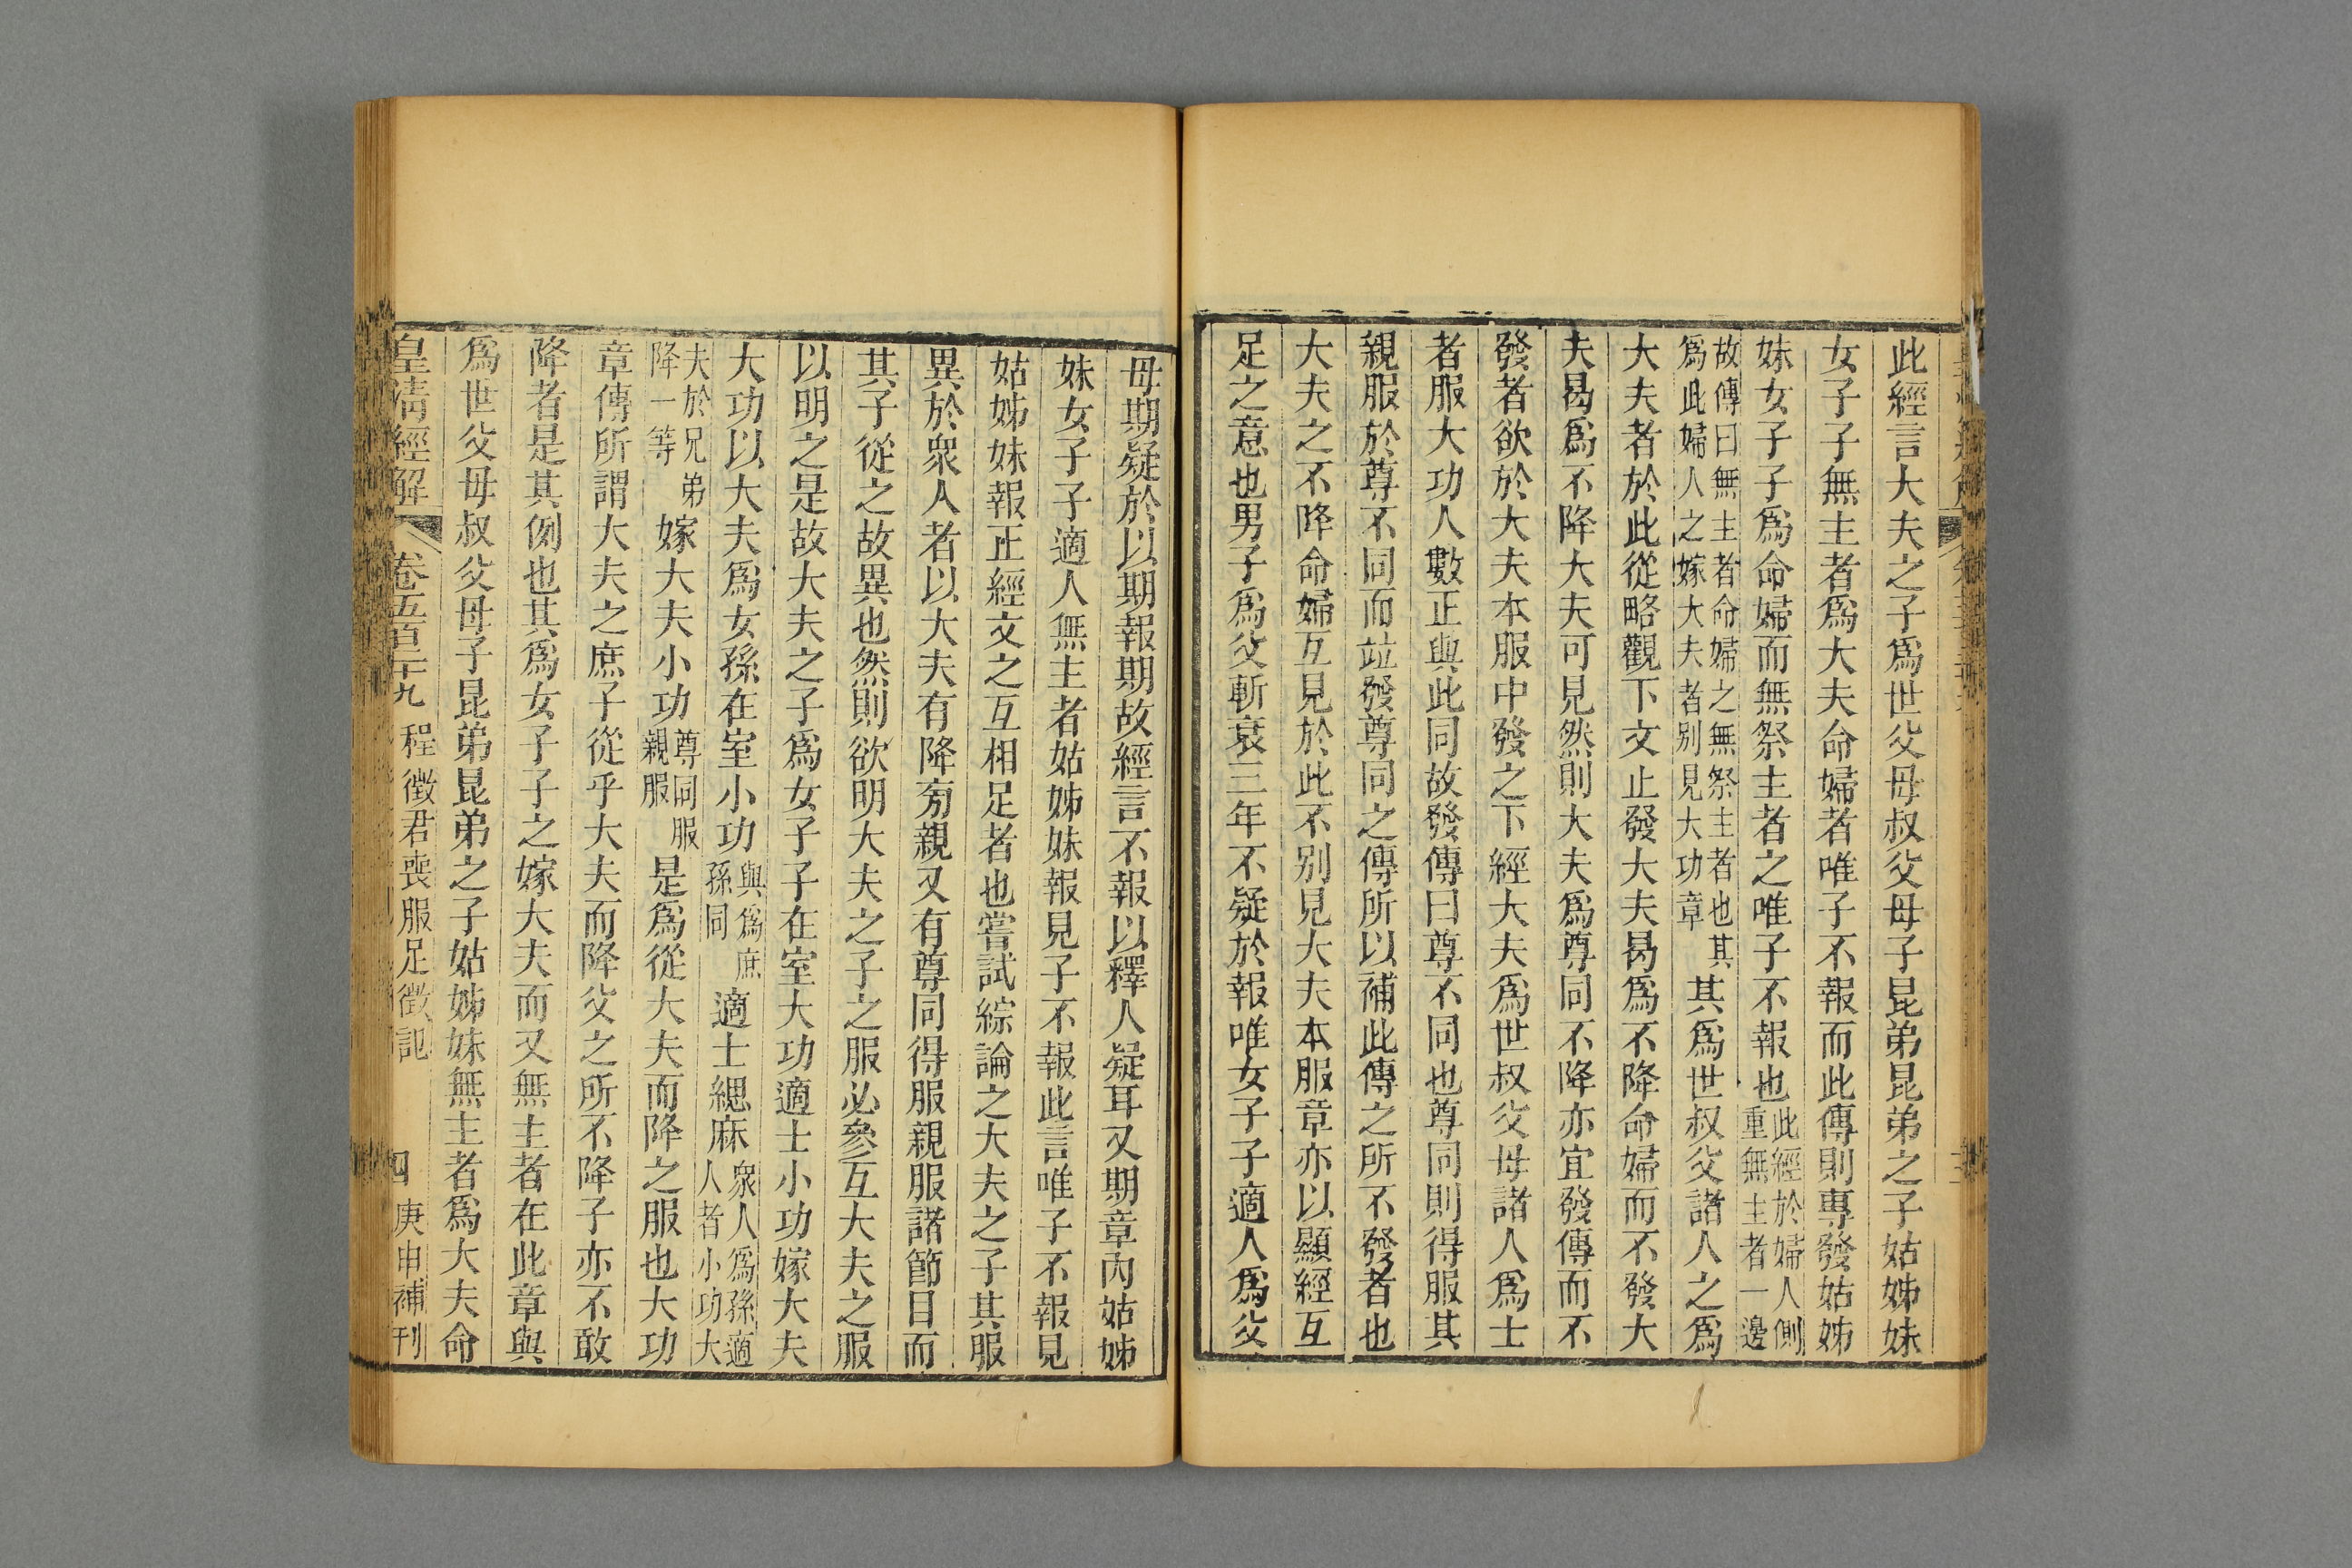 此經言大夫之子爲世父母叔父母子昆弟昆弟之子姑姊妹
女子子無主者爲大夫命婦者唯子不報而此傳則專發姑姊
妹女子子爲命婦而無祭主者之唯子不報也此經於婦人側重無主者一邊
故傳曰無主者命婦之無祭主者也其爲此婦人之嫁大夫者別見大功章其爲世叔父諸人之爲
大夫者於此從略觀下文止發大夫曷爲不降命婦而不發大
夫曷爲不降大夫可見然則大夫爲尊同不降亦宜發傳而不
發者欲於大夫本服中發之下經大夫爲世叔父母諸人爲士
者服大功人數正與此同故發傳曰尊不同也尊同則得服其
親服於尊不同而竝發尊同之傳所以補此傳之所不發者也
大夫之不降命婦互見於此不別見大夫本服章亦以顯經互
足之意也男子爲父斬衰三年不疑於報唯女子子適人爲父
母期疑於以期報期故經言不報以釋人疑耳又期章內姑姊
妹女子子適人無主者姑姊妹報見子不報此言唯子不報見
姑姊妹報正經文之互相足者也嘗試綜論之大夫之子其服
異於眾人者以大夫有降㫄親又有尊同得服親服諸節目而
其子從之故異也然則欲明大夫之子之服必參互大夫之服
以明之是故大夫之子爲女子子在室大功適士小功嫁大夫
大功以大夫爲女孫在室小功與爲庶孫同適士緦麻眾人爲孫適人者小功大
夫於兄弟降一等嫁大夫小功尊同服親服是爲從大夫而降之服也大功
章傳所謂大夫之庶子從乎大夫而降父之所不降子亦不敢
降者是其例也其爲女子子之嫁大夫而又無主者在此章與
爲世父母叔父母子昆弟昆弟之子姑姊妹無主者爲大夫命
皇清經解 卷五百二十九 程徵君喪服足徵記 四 庚申補刊